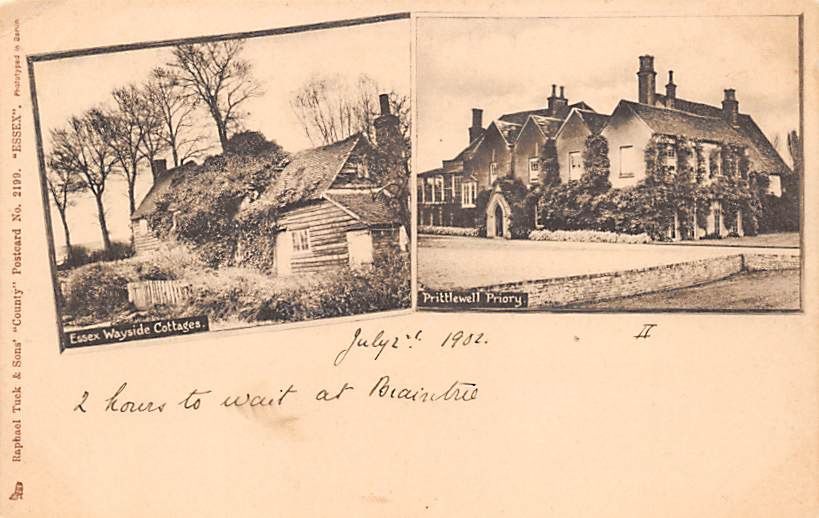 Raphael Tuck & Sons' "County" Postcard No. 2199. "ESSEX". Phototyped in Berlin
Essex Wayside Cottages.
Prittlewell Priory.
July 2d. 1902.
II
2 hours to wait at Braintree